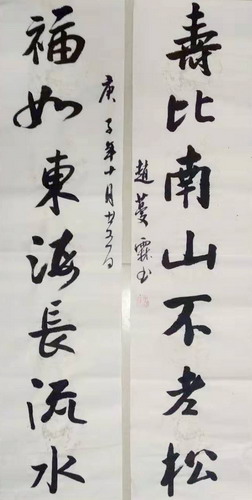 壽比南山不老松
趙蔓霖书
庚子年十月廿五日
福如東海長流水